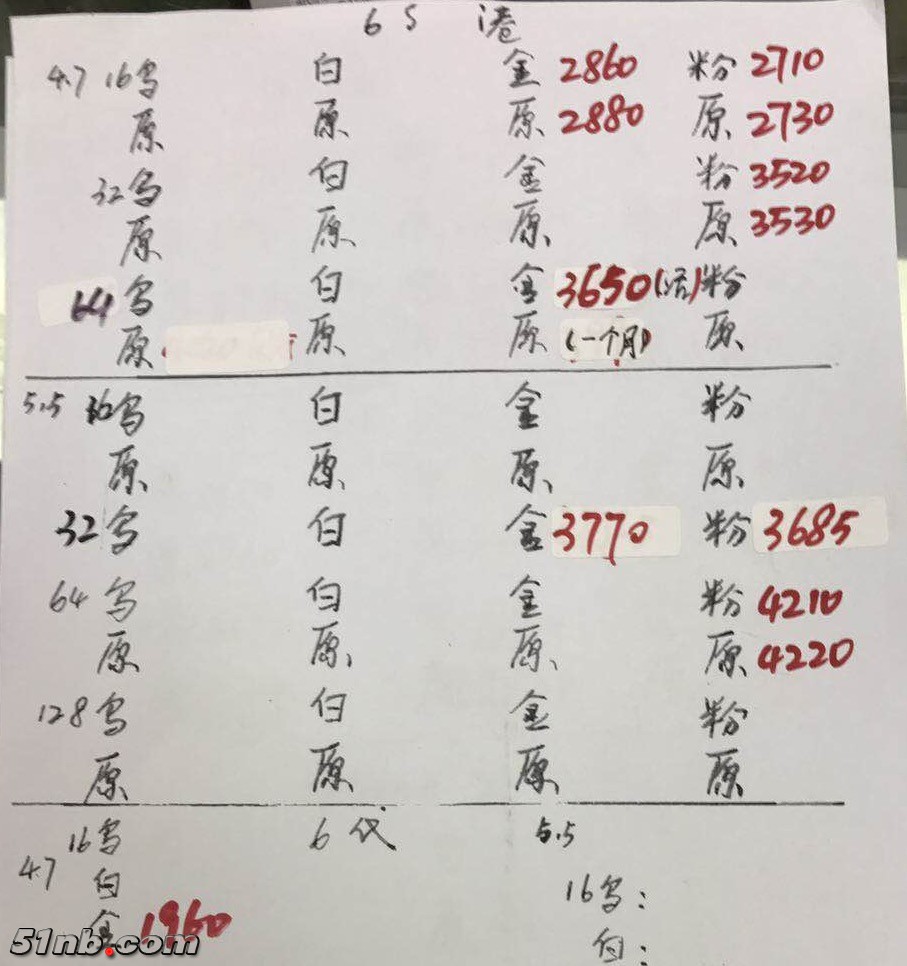 6S 港
4.7 16乌 白 金 2860 粉 2710
原 原 原 2880 原 2730
32乌 白 金 粉 3520
原 原 原 原 3530
64乌 白 金 3650(活) 粉
原 原 原 (一个月) 原
5.5 16乌 白 金 粉
原 原 原 原
32乌 白 金 3770 粉 3685
64乌 白 金 粉 4210
原 原 原 原 4220
128乌 白 金 粉
原 原 原 原
16乌 6代 5.5
4.7 白 16乌:
金 1960 白:
51nb.com